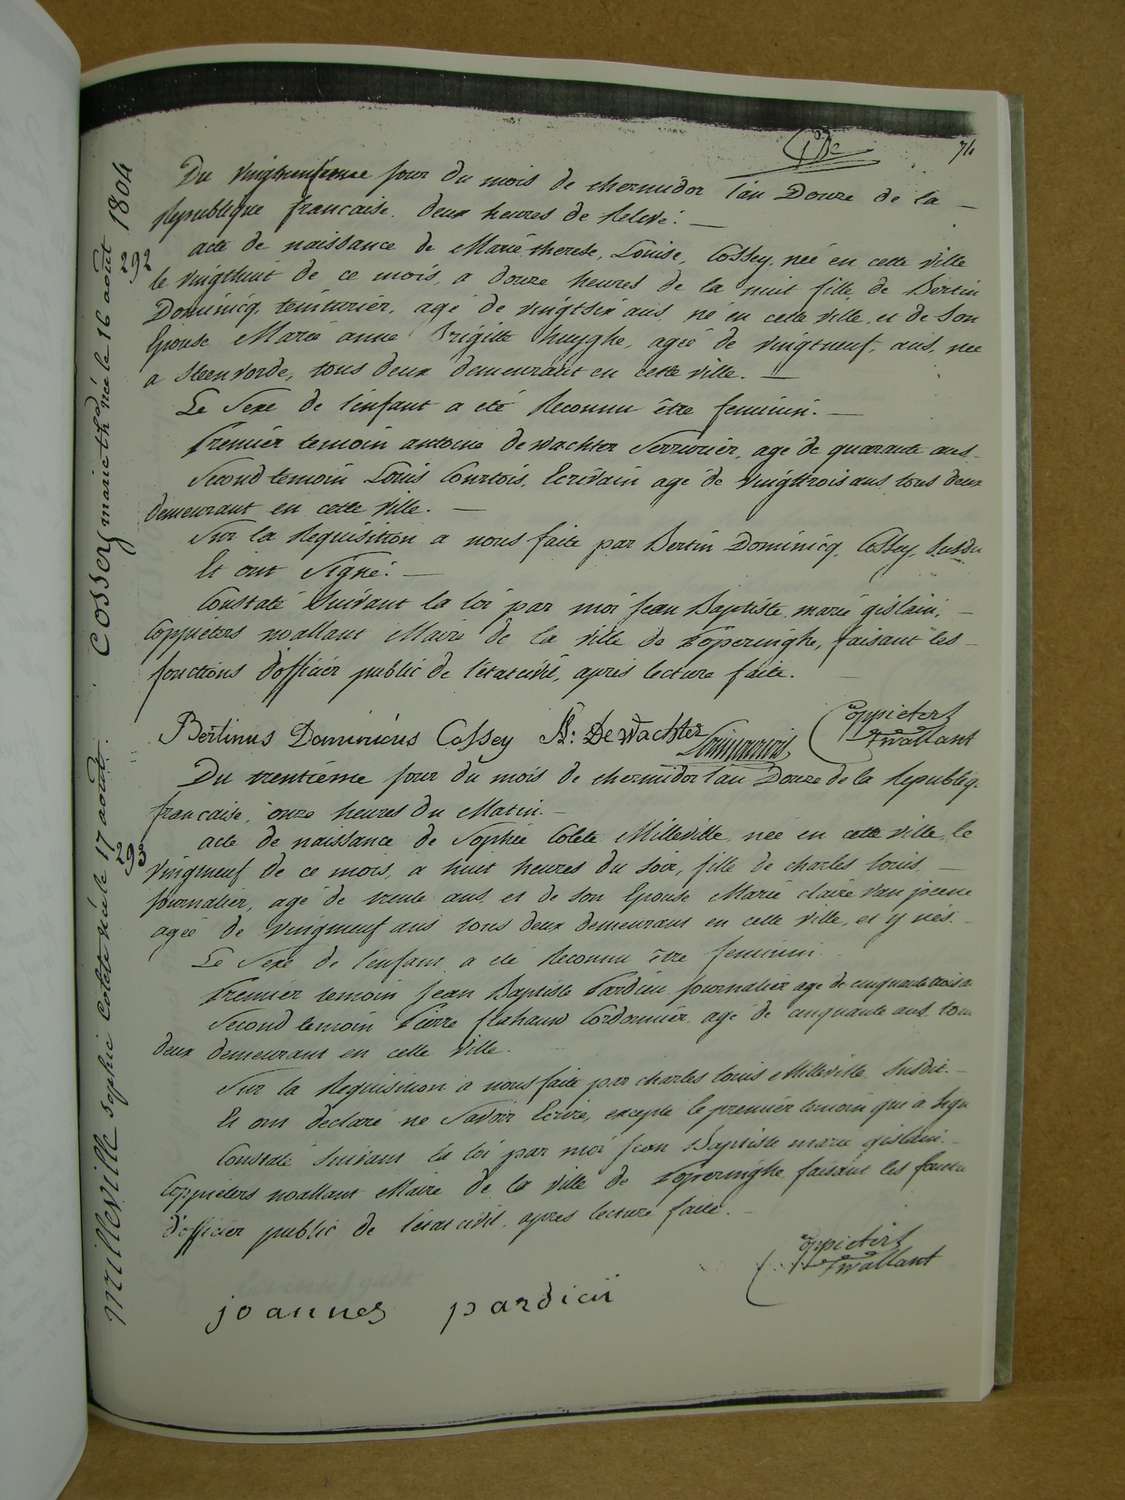 74
Du vingtneufieme jour du mois de thermidor l'an Douze de la —
Republique francaise. deux heures de Relevé. —
acte de naissance de Marie therese, Louise, Cossey, née en cette ville
le vingthuit de ce mois, a douze heures de la nuit fille, de Bertin
Dominicq, teinturier, agé de vingtsix ans, né en cette ville, et de son
Epouse Marie anne Brigitte huyghe, agée de vingtneuf, ans, née
a Steenvorde, tous deux demeurant en cette ville. —
Le Sexe de l'enfant a eté Reconnu être feminin. —
Premier temoin antoine de wachter Serrurier, agé de quarante ans
Second temoin Louis Courtois, Ecrivain agé de vingttrois ans tous deux
demeurant en cette ville. —
Sur la Requisition a nous faite par Bertin Dominicq, Cossey, Susdit
Et ont Signé. —
Constaté Suivant la loi par moi Jean Baptiste, marie gislain, —
Coppieters wallant Maire de la ville de Poperinghe, faisant les —
fonctions d'officier public de l'état civil, après lecture faite.
Bertinus Dominicus Cossey A: De Wachter Coppieters
wallant
Du trentième jour du mois de thermidor l'an Douze de la Republiq.
francaise, onze heures du Matin. —
acte de naissance de Sophie Colete Milleville, née en cette ville, le
vingtneuf de ce mois, a huit heures du soir, fille de charles louis —
journalier, agé de trente ans, et de son Epouse Marie claire van
agée de vingtneuf ans tous deux demeurant en cette ville, et y nés.
Le Sexe de l'enfant a eté Reconnu être feminin.
Premier temoin Jean Baptiste Pardieu journalier agé de cinquante trois a
Second temoin Pierre flahaud Cordonnier, agé de cinquante ans, tous
deux demeurant en cette ville.
Sur la Requisition a nous faite par charles louis Milleville Susdit. —
Et ont declaré ne Savoir Ecrire, excepté le premier temoin qui a signé
Constaté Suivant la loi par moi Jean Baptiste marie gislain. —
Coppieters wallant Maire de la ville de Poperinghe, faisant les foncti
d'officier public de l'état civil, après lecture faite. —
Coppieters
wallant
joannes pardieu
Cossey marie thése née le 16 août 1804
292
Milleville Sophie Colete née le 17 août
293